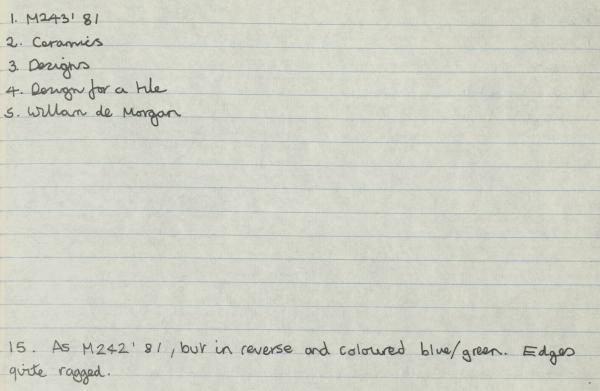 1. M243' 81
2. Ceramics
3. Designs
4. Design for a tile
5. William de Morgan
15. As M242' 81, but in reverse and coloured blue/green. Edges
quite ragged.